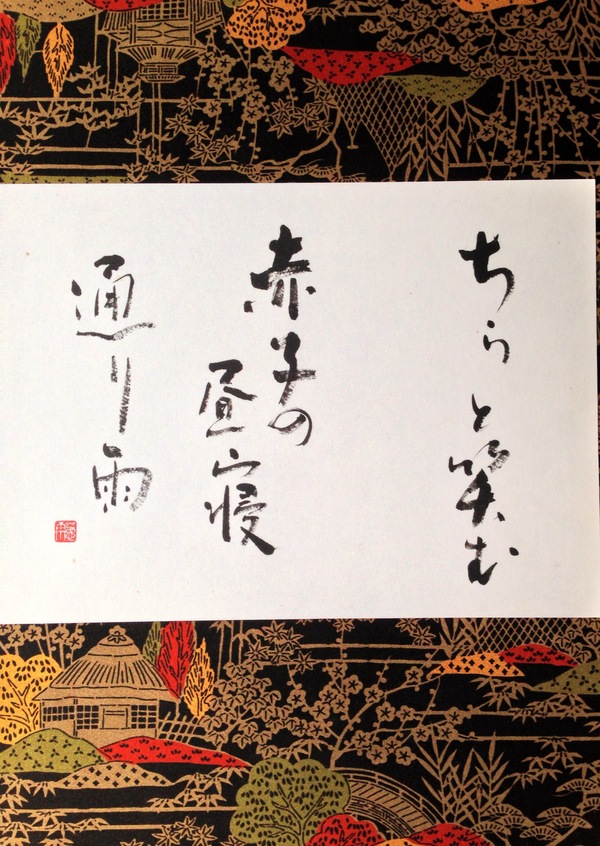 ちらと笑む
赤子の昼寝
通り雨